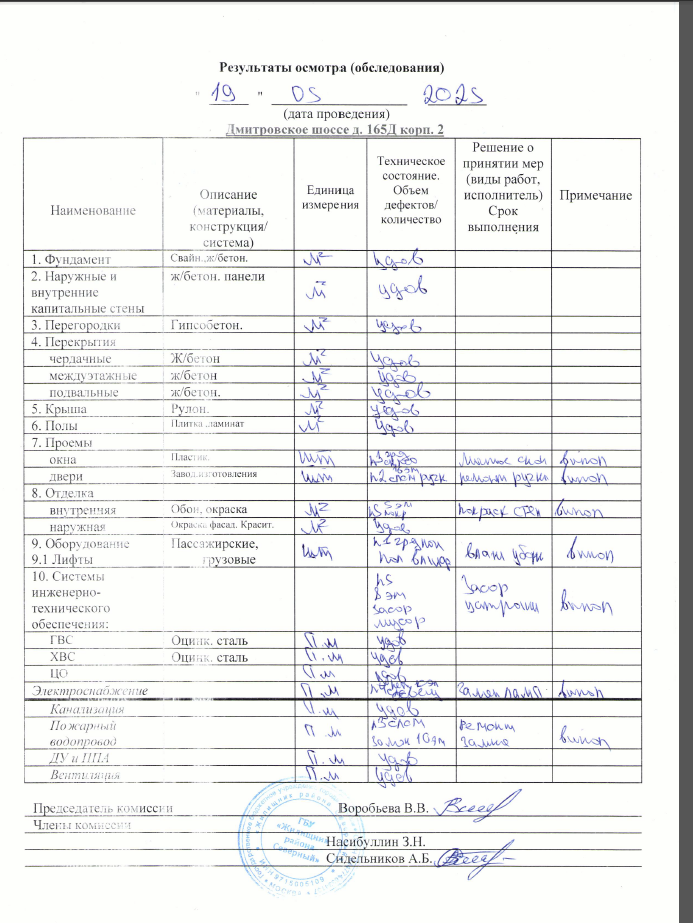 Результаты осмотра (обследования)
" 19 " 05 2025
(дата проведения)
Дмитровское шоссе д. 165Д корп. 2
Наименование Описание (материалы, конструкция/ система) Единица измерения Техническое состояние. Объем дефектов/ количество Решение о принятии мер (виды работ, исполнитель) Срок выполнения Примечание
1. Фундамент Свайн.,ж/бетон. м² удов
2. Наружные и ж/бетон. панели
внутренние м² удов
капитальные стены
3. Перегородки Гипсобетон. м² удов
4. Перекрытия
чердачные Ж/бетон м² удов
междуэтажные ж/бетон м² удов
подвальные ж/бетон. м² удов
5. Крыша Рулон. м² удов
6. Полы Плитка ,ламинат м² удов
7. Проемы
окна Пластик. шт вып
двери Завод.изготовления шт ремонт ручки вып
8. Отделка
внутренняя Обои, окраска м² покраск стен вып
наружная Окраска фасад. Красит. м² удов
9. Оборудование Пассажирские,
9.1 Лифты грузовые шт влажн уборк вып
10. Системы п5
инженерно- 8 эт Засор
технического засор устронили вып
обеспечения: мусор
ГВС Оцинк. сталь П.м удов
ХВС Оцинк. сталь П.м удов
ЦО П.м удов
Электроснабжение П.м Замен ламп вып
Канализация П.м удов
Пожарный п3 слом Ремонт
водопровод П.м замок 10эт замка вып
ДУ и ППА П.м удов
Вентиляция П.м удов
Председатель комиссии Воробьева В.В.
Члены комиссии
Насибуллин З.Н.
Сидельников А.Б.
ГБУ
«Жилищник
района
Северный»